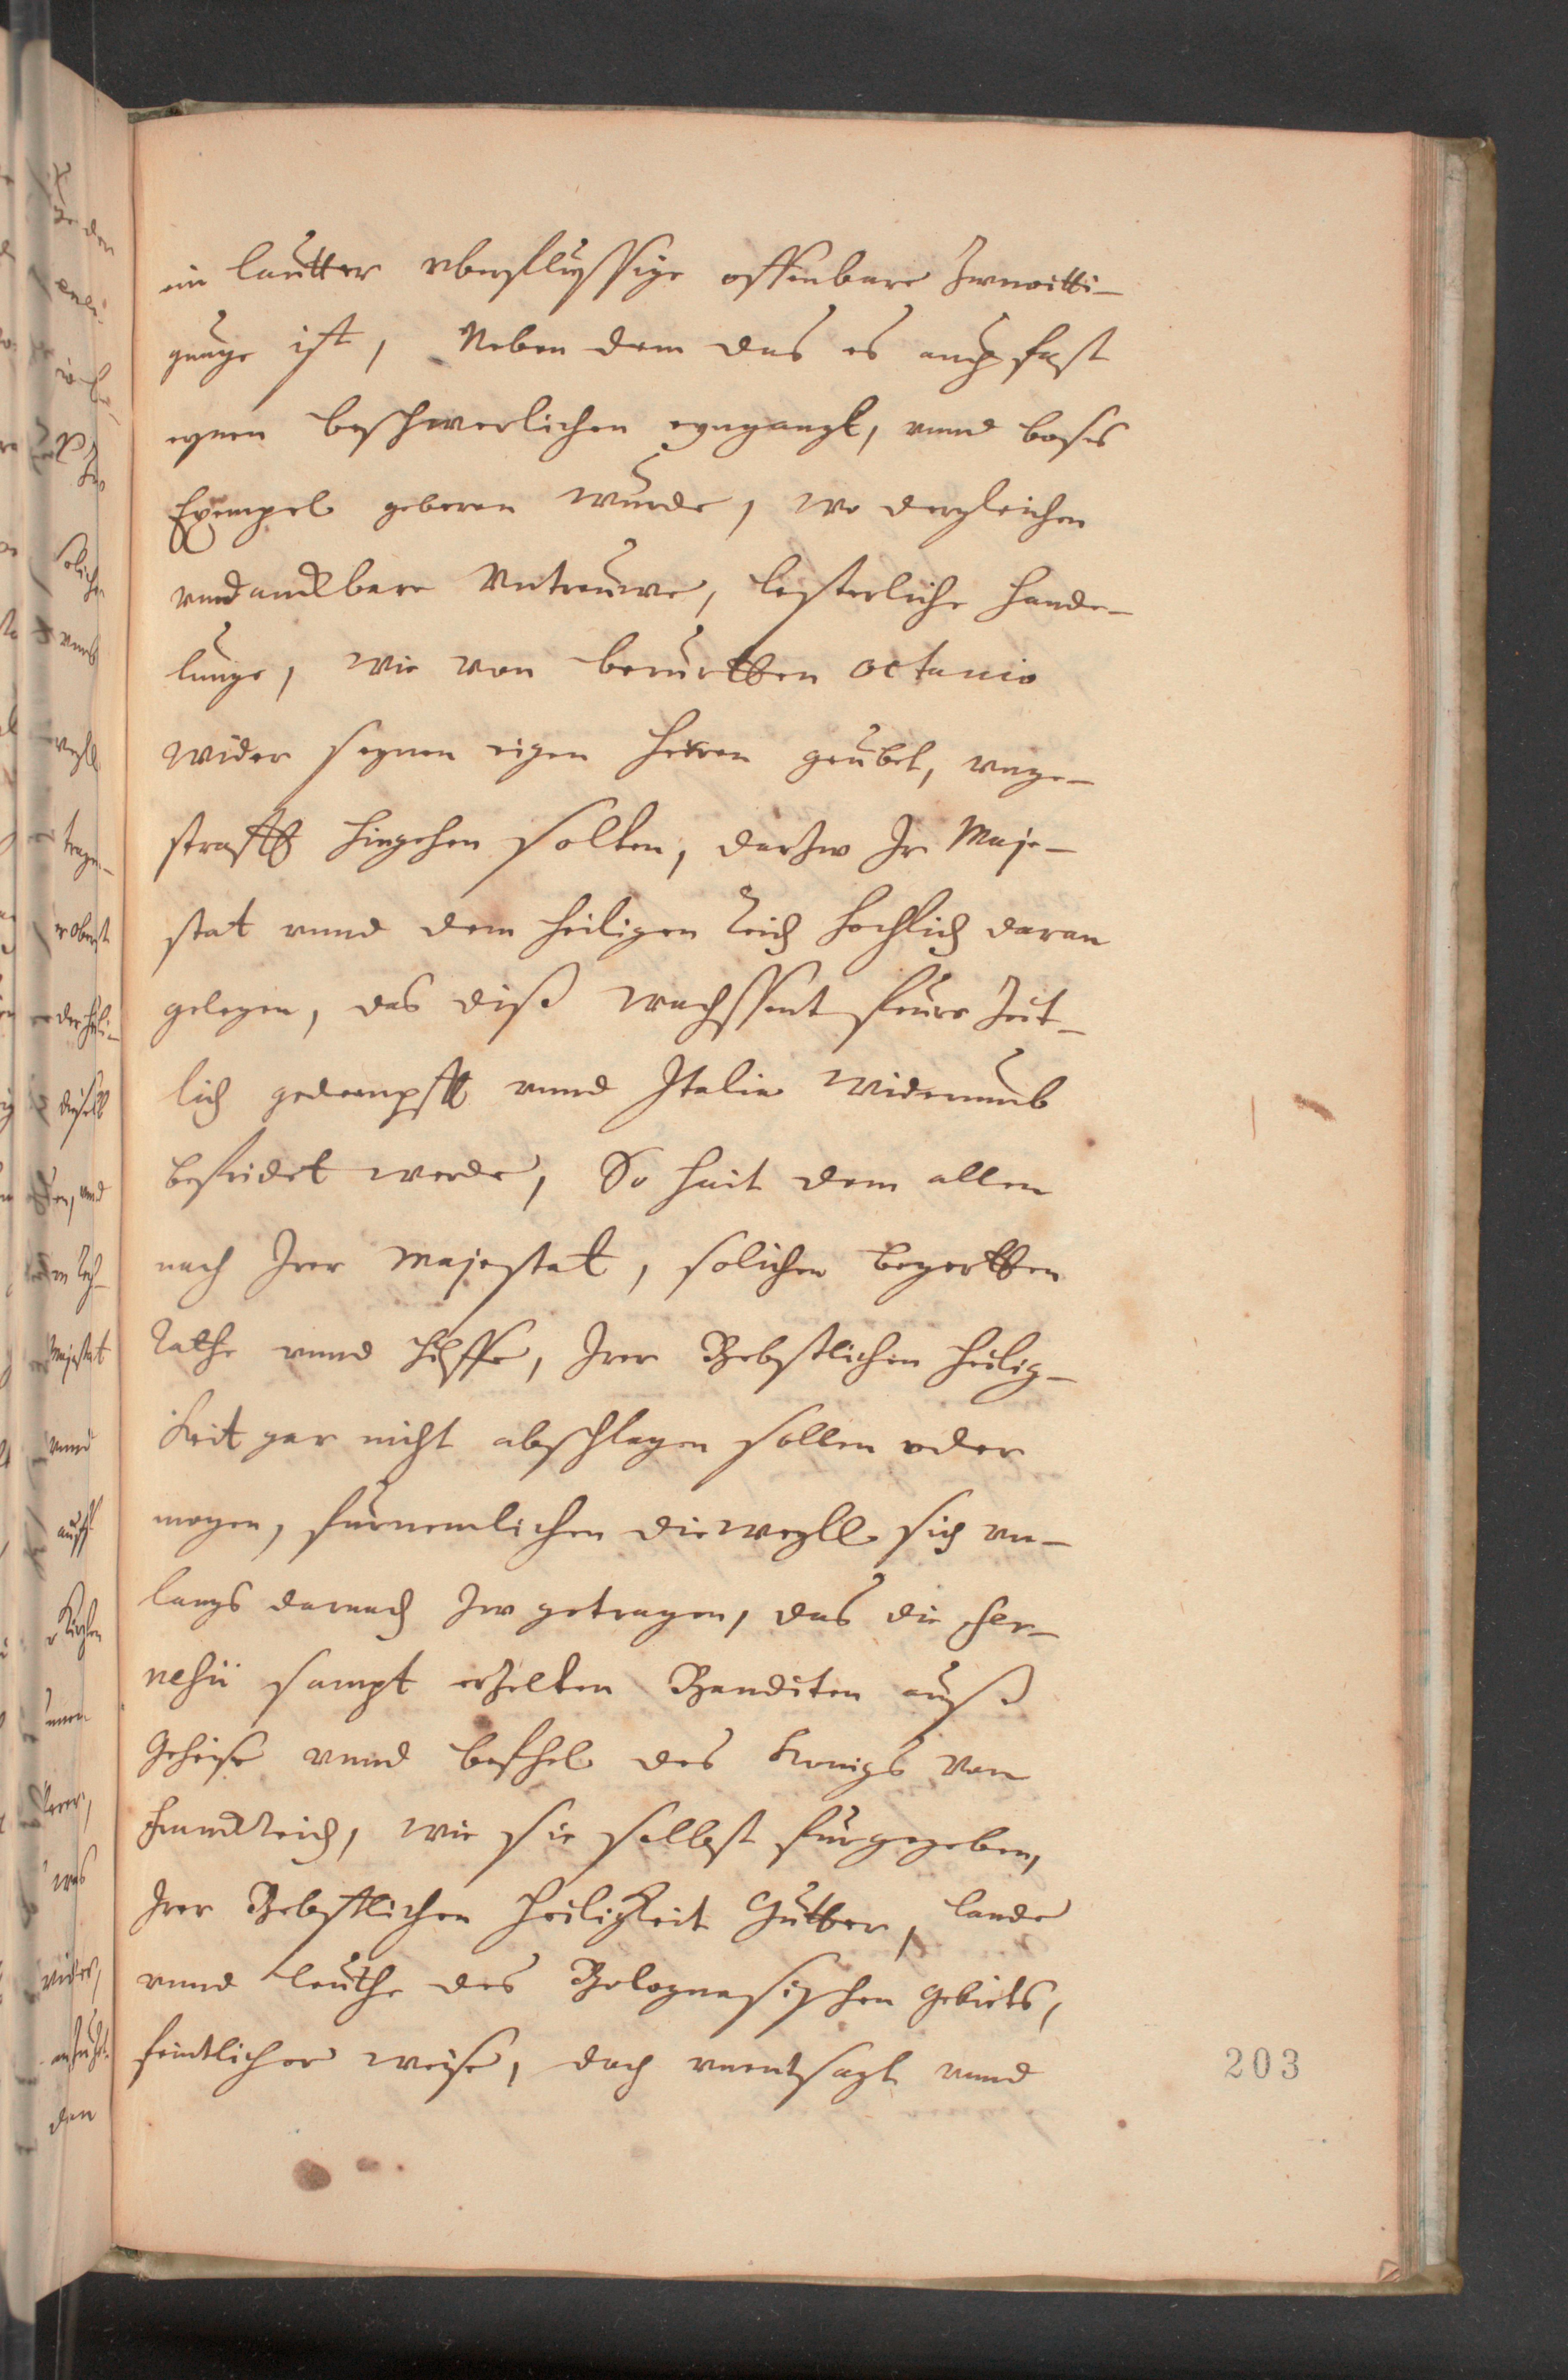 ein lautter vberflussige offenbare Zwnoitti-
gunge ist, Neben dem das es auch fast
eynen beschwerlichen eyngangk, vnnd boses
Exempel geberen wurde, wo dergleichen
vndanckbare Vntreuwe, lesterliche Hande-
lunge, wie von berurtten Octauio
wider seynen eigen Herren geubet, vnge-
strafft hingehen solten, dartzw Ir Maje-
stat vnnd dem heiligen Reich hochlich daran
gelegen, das diß wachssent feure Zeit-
lich gedempfft vnnd Italia widerumb
befridet werde, So hait dem allen
nach Irer Majestat, solichen begertten
Rathe vnnd hilffe, Irer Bebstlichen heilig-
keit gar nicht abschlagen sollen oder
mogen, furnemlichen dieweyll sich vn-
langs darnach zw getragen, das die Far-
nesii sampt erzelten Banditen auß
Geheise vnnd befhel des Konigs von
Franckreich, wie sie selbst furgegeben,
Irer Bebstlichen Heiligkeit Gutter, lande
vnnd leuthe des Bolognesischen gebiets,
feintlicher weise, doch vnentsagt vnnd
203